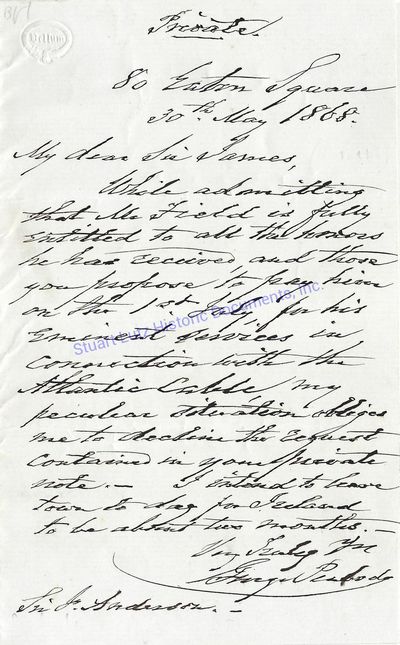 Private.
80 Eaton Square
30th May 1868.
My dear Sir James,
While admitting
that Mr Field is fully
entitled to all the honors
he has received, and those
you propose to pay him
on the 1st July, for his
eminent services in
connection with the
Atlantic Cable, my
peculiar situation obliges
me to decline the request
contained in your private
note. — I intend to leave
town to day for Ireland
to be absent two months. —
Very Truly Yrs
George Peabody
Sir Js. Anderson. —
Stuart Lutz Historic Documents, Inc.